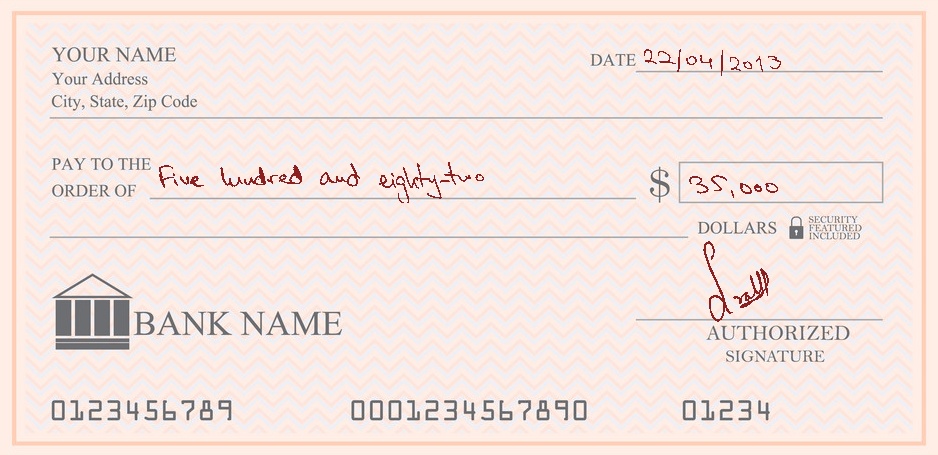 YOUR NAME
Your Address
City, State, Zip Code
DATE 22/04/2013
PAY TO THE
ORDER OF Five hundred and eighty-two $ 35,000
DOLLARS SECURITY
FEATURED
INCLUDED
BANK NAME
AUTHORIZED
SIGNATURE
0123456789 0001234567890 01234